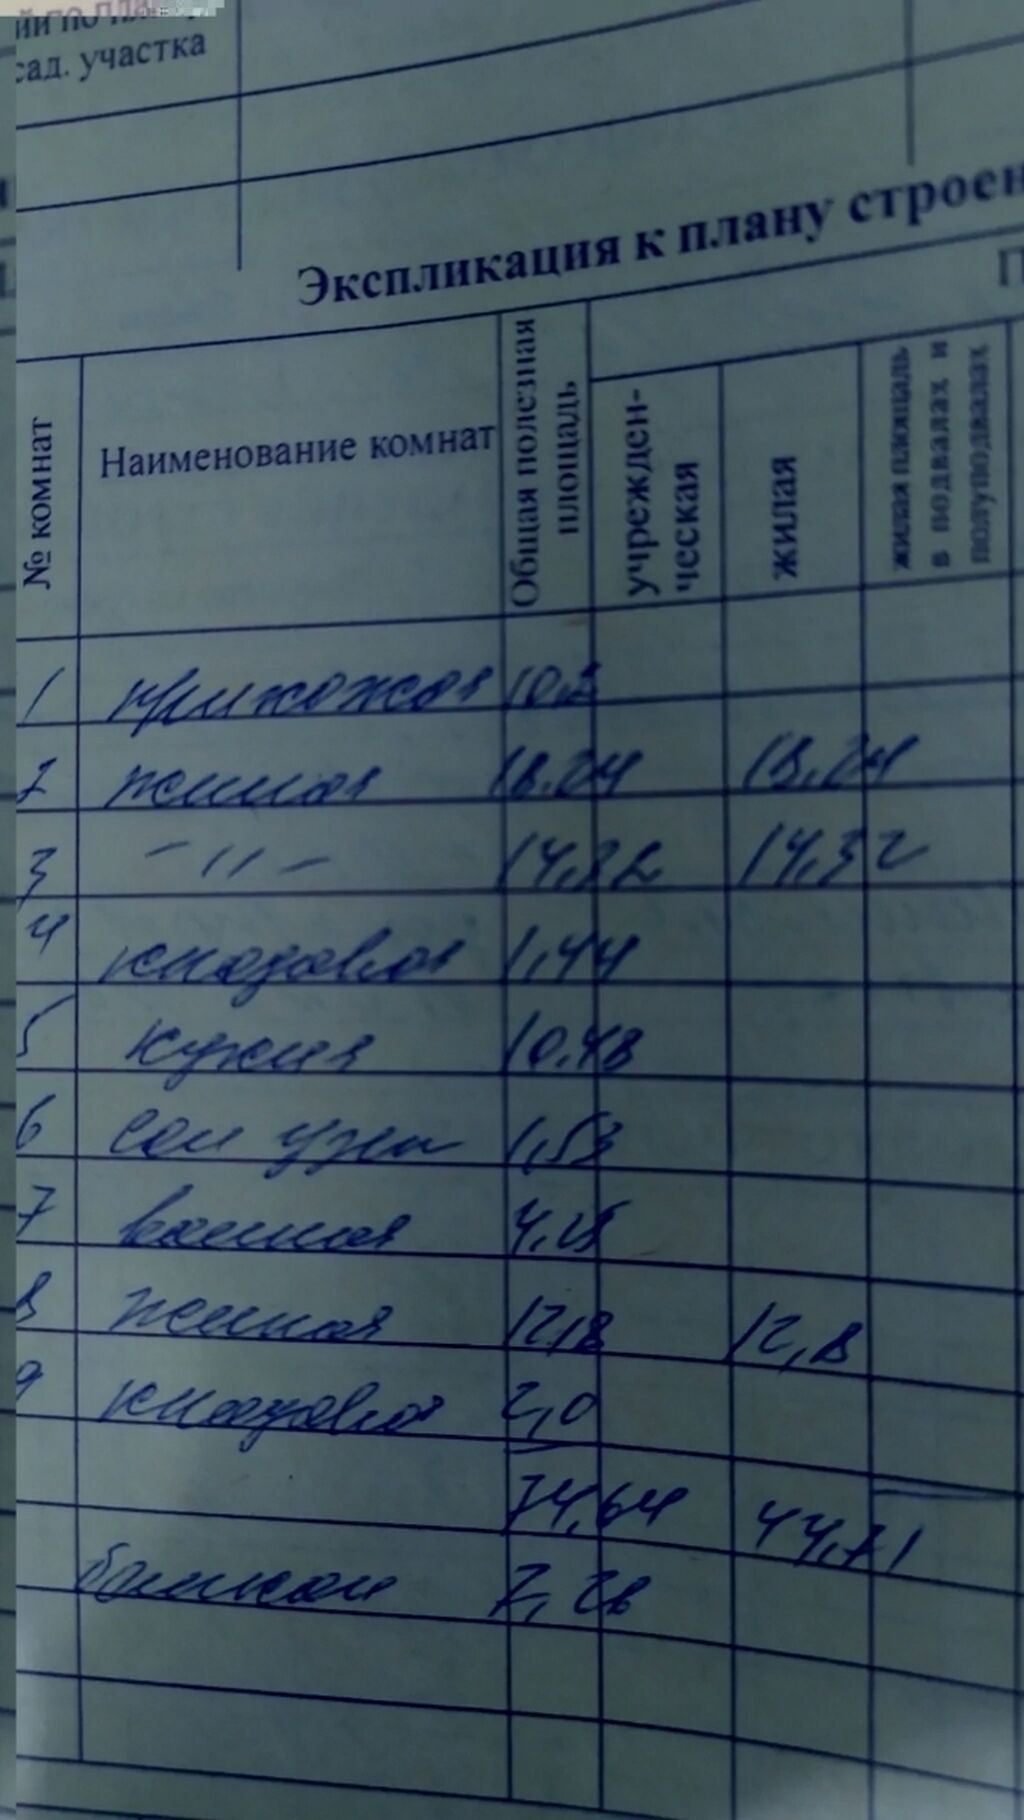 сад. участка
Экспликация к плану строен
№ комнат
Наименование комнат
Общая полезная площадь
учрежден-
ческая
жилая
жилая площадь
в подвалах и
полуподвалах
1 прихожая 10,2
2 жилая 18.24 18,24
3 -"-
4 кладовая 1,44
5 кухня 10.48
6 сан узел 1,53
7 ванная
8 жилая 12,8
9 кладовая 2,0
74,64
балкон